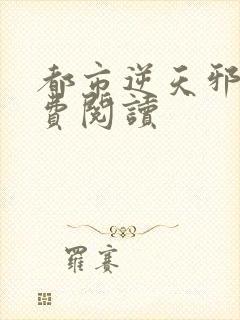 都市逆天邪
費閱讀
羅賽